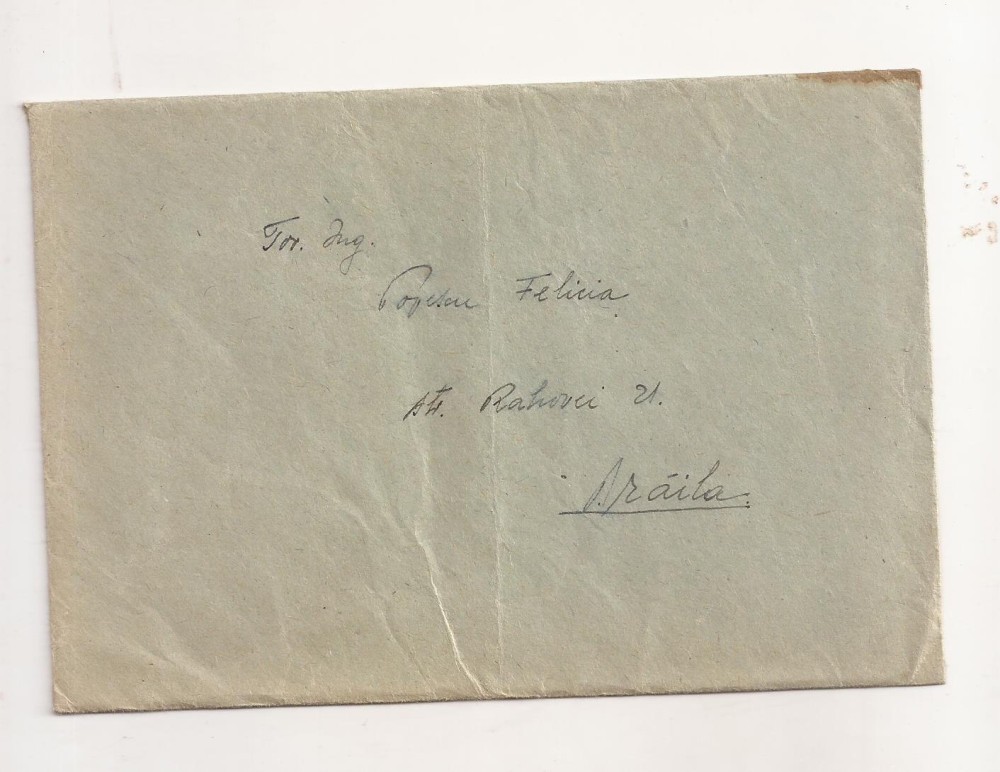 Tov. Ing.
Popescu Felicia
str. Rahovei 21.
Brăila.